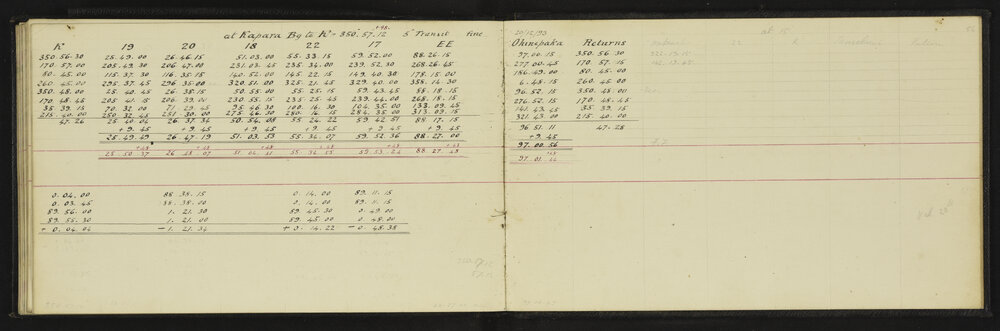 +48
at Kapara Bg to K' = 350. 57. 12 5" Transit Fine
20/12/93
K' 19 20 18 22 17 EE Ohinepaka Returns
350. 56. 30 25. 49. 00 26. 46. 15 51. 03. 00 55. 33. 15 59. 52. 00 88. 26. 15 97. 00. 15 350. 56. 30
170. 57. 00 205. 49. 30 206. 47. 00 231. 03. 45 235. 34. 00 239. 52. 30 268. 26. 45 277. 00. 45 170. 57. 15
80. 45. 00 115. 37. 30 116. 35. 15 140. 52. 00 145. 22. 15 149. 40. 30 178. 15. 00 186. 49. 00 80. 45. 00
260. 45. 00 295. 37. 45 296. 35. 00 320. 51. 00 325. 21. 45 329. 40. 00 358. 14. 30 6. 48. 15 260. 45. 00
350. 48. 00 25. 40. 45 26. 38. 15 50. 55. 00 55. 25. 15 59. 43. 45 88. 18. 15 96. 52. 15 350. 48. 00
170. 48. 45 205. 41. 15 206. 39. 00 230. 55. 15 235. 25. 45 239. 44. 00 268. 18. 15 276. 52. 15 170. 48. 45
35. 39. 15 70. 32. 00 71. 29. 45 95. 46. 30 100. 16. 30 104. 35. 00 133. 09. 45 141. 43. 45 35. 39. 15
215. 40. 00 250. 32. 45 251. 30. 00 275. 46. 30 280. 16. 15 284. 35. 00 313. 09. 15 321. 43. 00 215. 40. 00
47. 26 25. 40. 04 26. 37. 34 50. 54. 08 55. 24. 22 59. 42. 51 88. 17. 15 96. 51. 11 47. 28
+ 9. 45 + 9. 45 + 9. 45 + 9. 45 + 9. 45 + 9. 45 + 9. 45
25. 49. 49 26. 47. 19 51. 03. 53 55. 34. 07 59. 52. 36 88. 27. 00 97. 00. 56
+48 +48 +48 +48 +48 +48 +48
25. 50. 37 26. 48. 07 51. 04. 41 55. 34. 55 59. 53. 24 88. 27. 48 97. 01. 44
0. 04. 00 88. 38. 15 0. 14. 00 89. 11. 15
0. 03. 45 88. 38. 00 0. 14. 00 89. 11. 15
89. 56. 00 1. 21. 30 89. 45. 30 0. 49. 00
89. 55. 30 1. 21. 00 89. 45. 00 0. 48. 00
+ 0. 04. 04 - 1. 21. 34 + 0. 14. 22 - 0. 48. 38